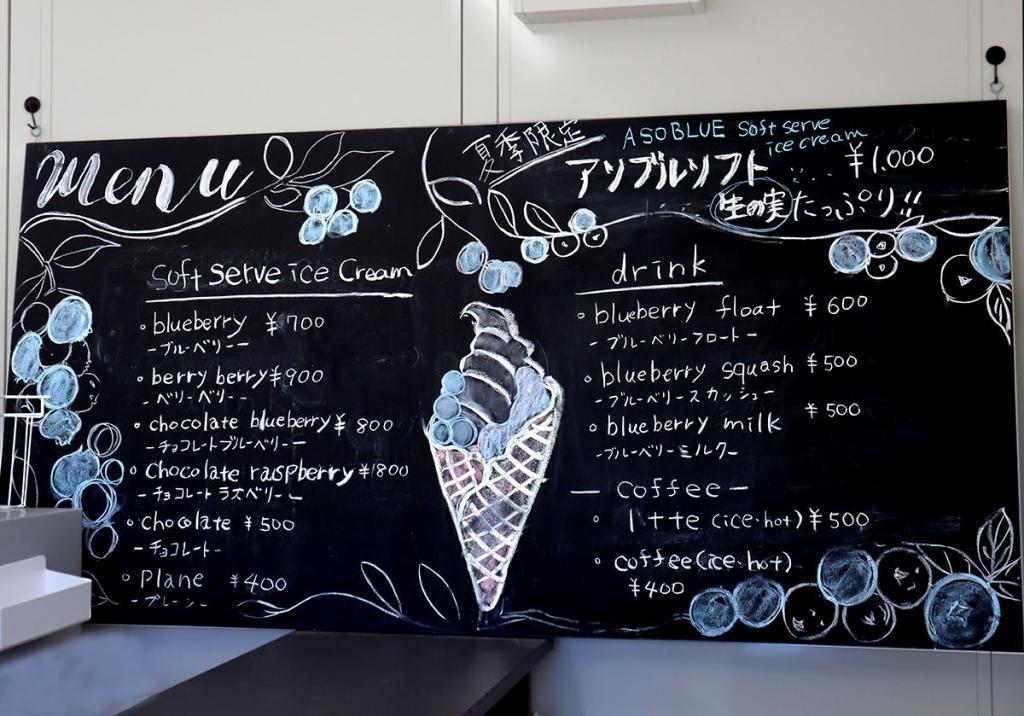 Menu
夏季限定
ASOBLUE Soft serve
ice cream
アソブルソフト ¥1,000
生の実たっぷり!!
Soft Serve ice Cream
・blueberry ¥700
-ブルーベリー-
・berry berry ¥900
-ベリーベリー-
・chocolate blueberry ¥800
-チョコレートブルーベリー-
・Chocolate raspberry ¥800
-チョコレートラズベリー-
・Chocolate ¥500
-チョコレート-
・Plane ¥400
-プレーン-
drink
・blueberry float ¥600
-ブルーベリーフロート-
・blueberry squash ¥500
-ブルーベリースカッシュ-
・blueberry milk ¥500
-ブルーベリーミルク-
- coffee -
・ltte (ice・hot) ¥500
・coffee (ice・hot)
¥400